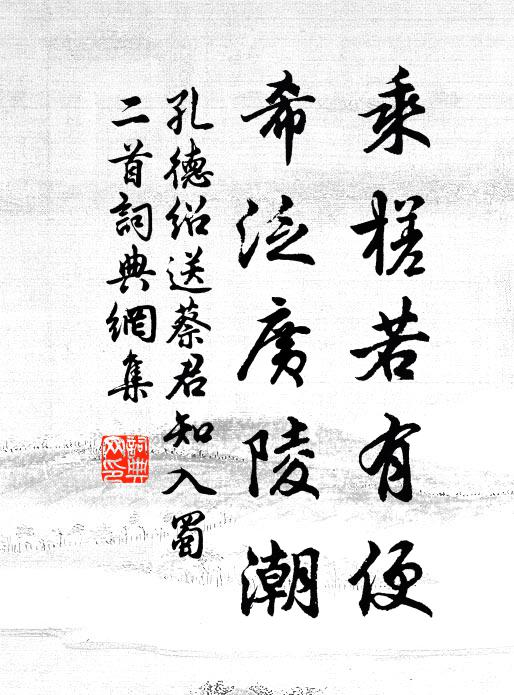 乘槎若有便
希泛廣陵潮
孔德绍送蔡君知入蜀
二首詞典網集
詞典網印